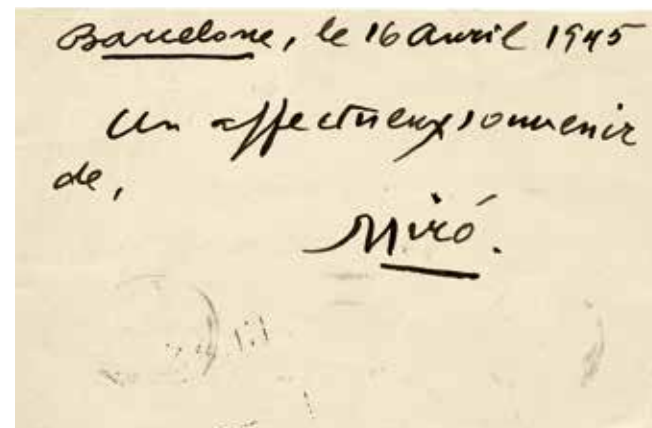 Barcelone, le 16 Avril 1945
un affectueux souvenir
de,
Miró.